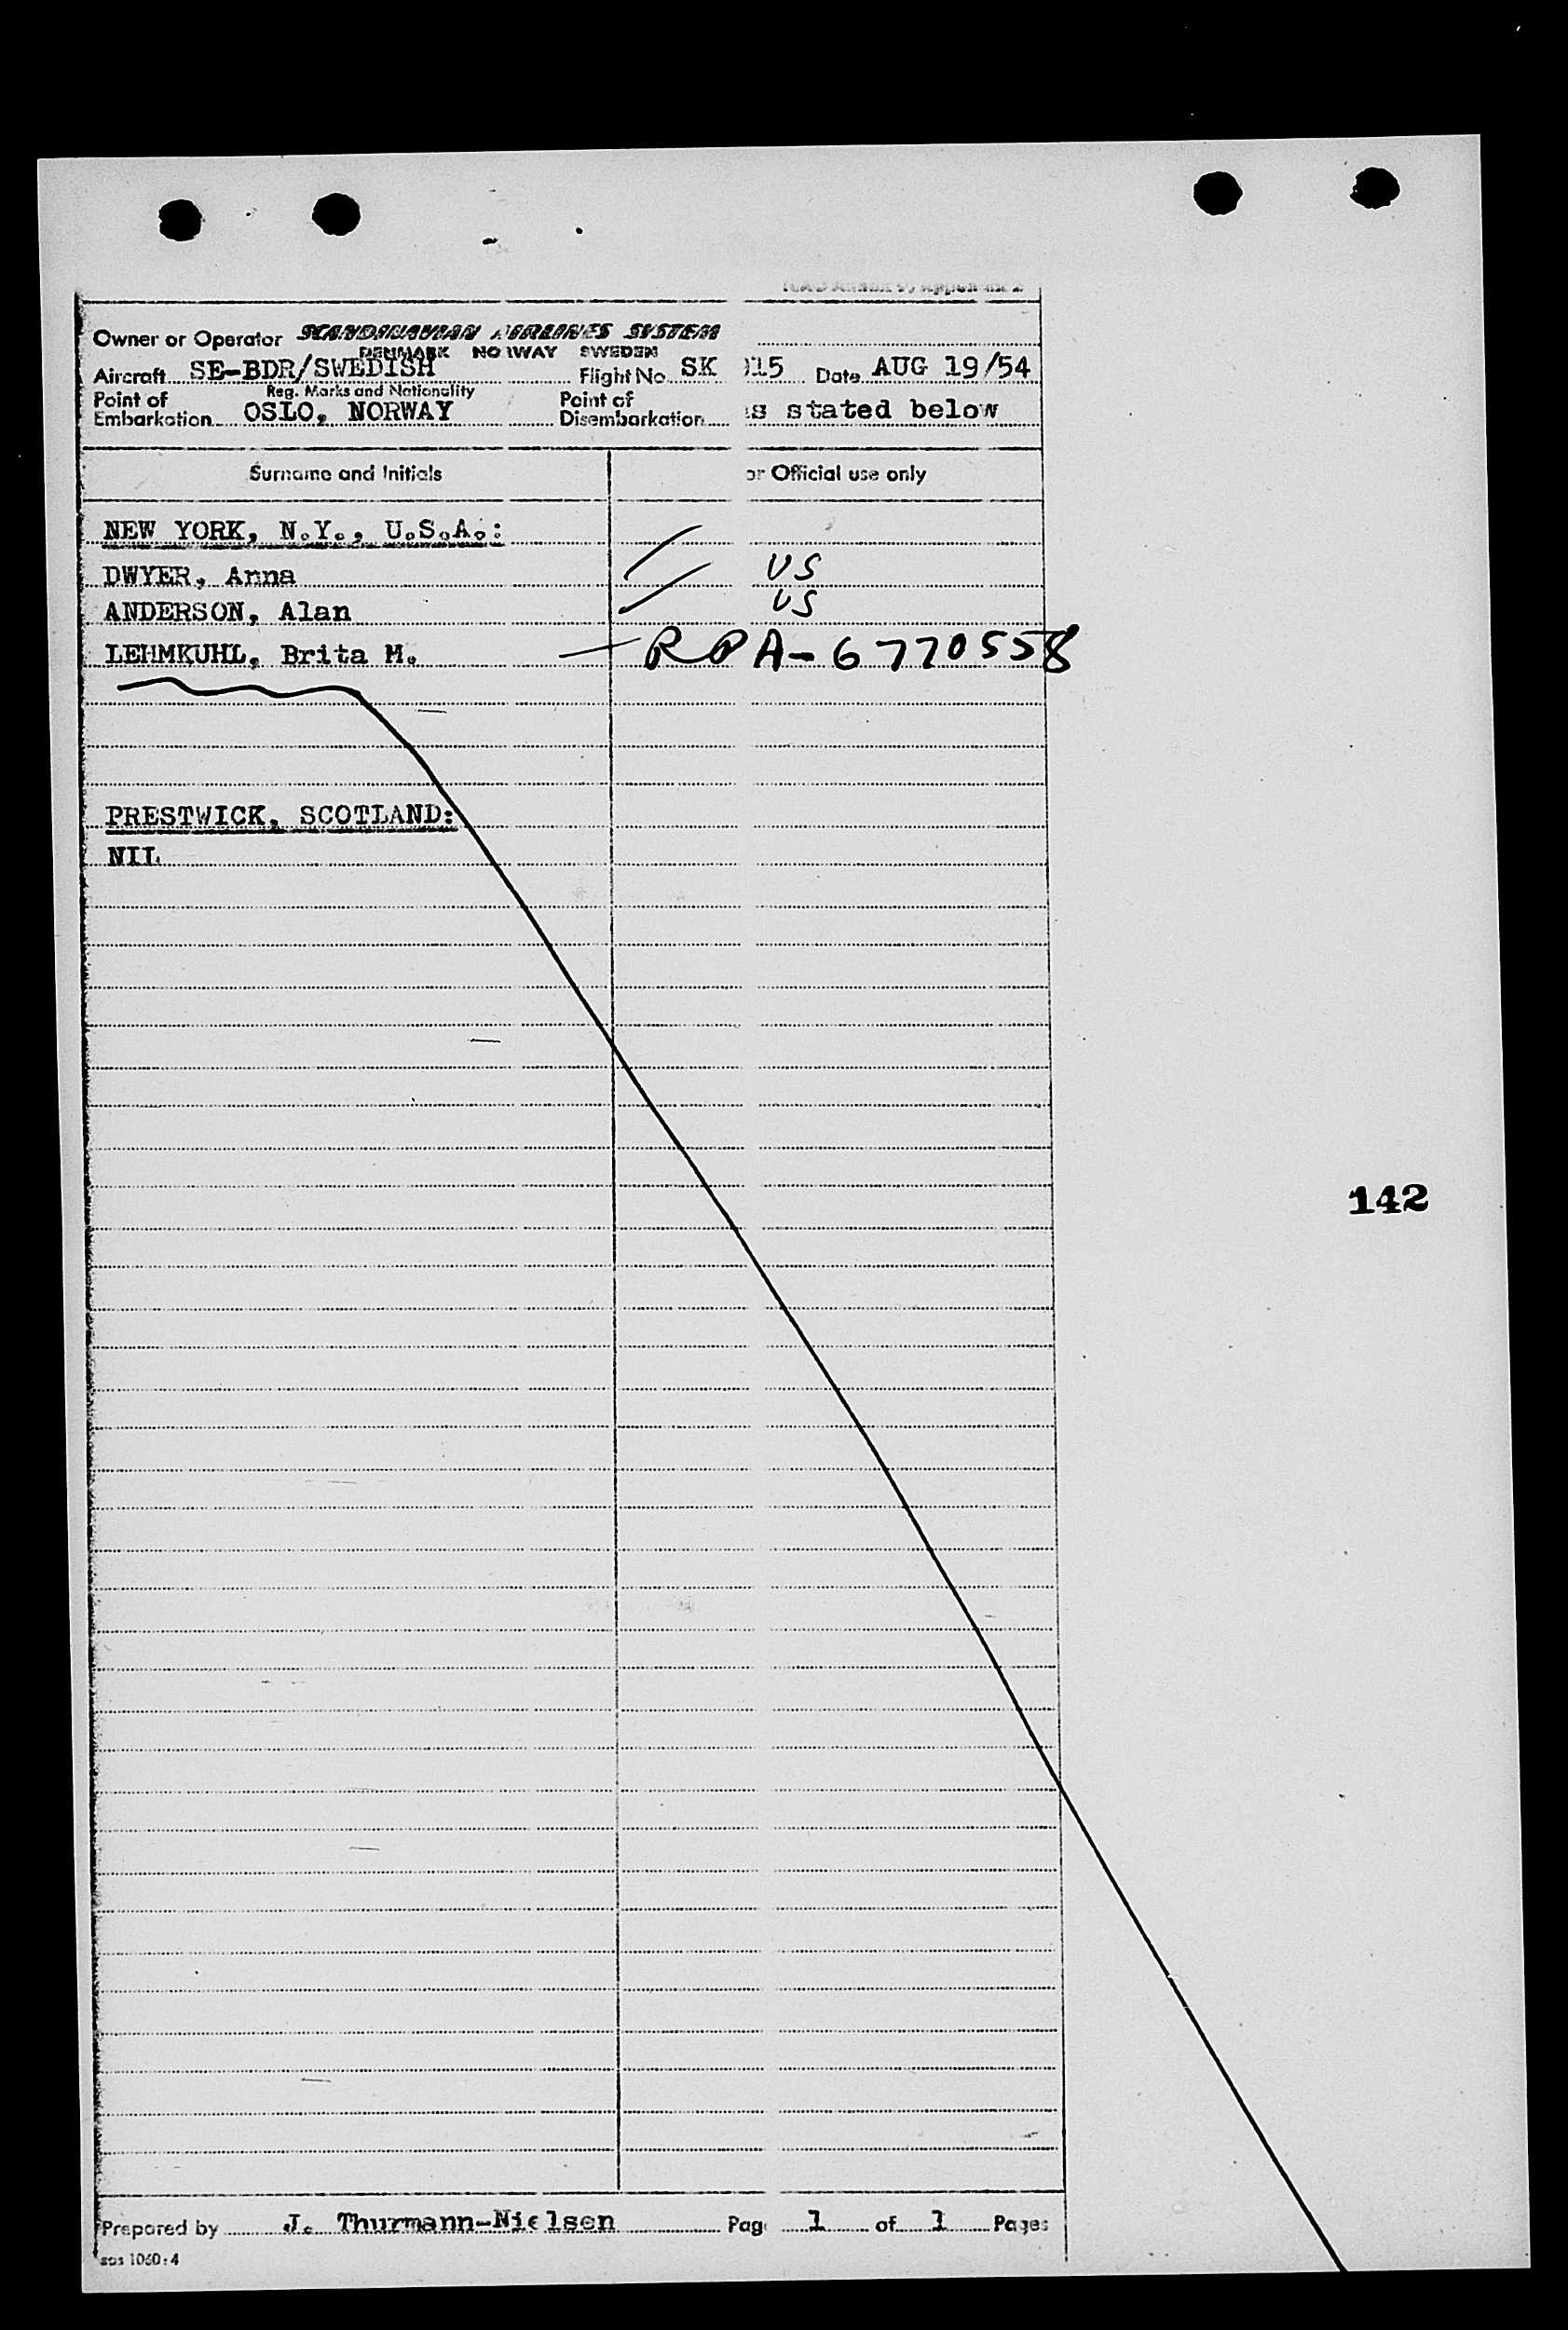 Owner or Operator SCANDINAVIAN AIRLINES SYSTEM
DENMARK NORWAY SWEDEN
Aircraft SE-BDR/SWEDISH Flight No. SK 915 Date AUG 19/54
Reg. Marks and Nationality
Point of Embarkation OSLO, NORWAY Point of Disembarkation as stated below
Surname and Initials or Official use only
NEW YORK, N.Y., U.S.A.:
DWYER, Anna US
ANDERSON, Alan US
LEHMKUHL, Brita M. RPA-6770558
PRESTWICK, SCOTLAND:
NIL
142
Prepared by J. Thurmann-Nielsen Page 1 of 1 Pages
sas 1060:4